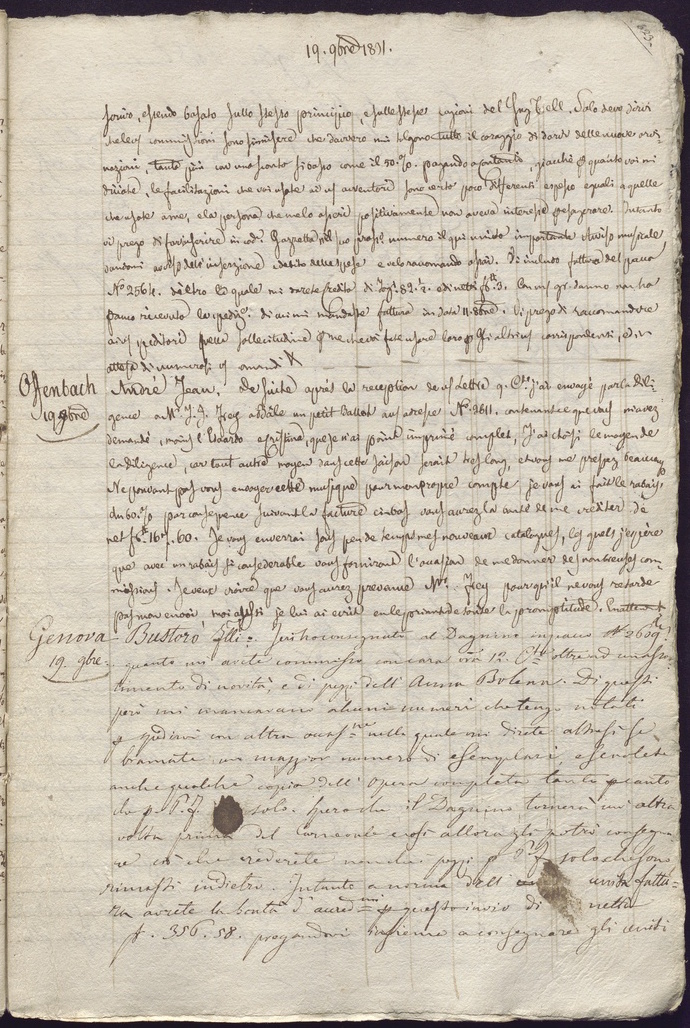 19. 9bre 1831.
scrivo, essendo basato sullo stesso principio, e sulle stesse ragioni del Gug Tell. Solo devo dirvi
che le commissioni sono si misere che davvero mi tolgono tutto il coraggio di darvi delle nuove ordi
nazioni, tanto più con uno sconto si basso come il 50 %. pagando a contante, giacchè quanto voi mi
dite, le facilitazioni che voi usate ai avventori sono certo poco differenti e spesso eguali a quelle
che usate a me, e la persona che me lo asserì positivamente non aveva interesse per esagerare. Intanto
vi prego di far inserire in cod. Gazzetta nel suo pross. numero il qui unito importante Avviso musicale
dandomi avviso dell'inserzione debito delle spese e ve lo raccomando assai. Vi includo fattura del pacco
No 2564. dietro la quale mi darete credito di
ancora ricevuto le spediz. di cui mi mandaste fattura in data 11. 8bre. Vi prego di raccomandare
ai speditori sollecitudine altri corrispondenti, ed in
attesa di numerosi comandi
Offenbach
19 9bre
André Jean, De suite après la reception de Lettre j'ai envoyé par la Dili
gence a Mr J. J. Frey a Basile un petit Ballot a adresse No 2611. contenant ce que vous m'avez
demandé, moins l'Edoardo e Cristina, que je n'ai point imprimé complet, J'ai choisi le moyen de
la diligence, car tout autre moyen dans cette saison serait tres long, et vous me pressez beaucoup
Ne pouvant pas vous envoyer cette musique pour mon propre compte je vous ai fait le rabais
du 60 % par consequence suivant la facture ci bas vous aurez la bonté de me crediter de
net 16 60. Je vous enverrai sous peu de temps mes nouveaux catalogues, les quels j'espère
que avec un rabais si considerable vous forniront l'occasion de me donner des nombreuses com
missions. Je veux croire que vous aurez prevenu Mr. Frey pour qu'il ne vous retarde
pas mon envoi moi aussi je lui ai ecrit en le priant de toute la promptitude.
Genova
19 9bre.
Bustoro' Flli = Ieri ho consegnato al Dagnino un pacco No 2609
quanto mi avete commesso con cara vra 12. Cte oltre ad un assor
timento di novità, e di pezzi dell' Anna Bolena. Di questi
però mi mancavano alcuni numeri che tengo notati
spedirvi con altra occasne nella quale mi direte altresi se
bramate un maggior numero di esemplari, e se volete
anche qualche copia dell' Opera completa tanto canto
che p. P.F. solo. Spero che il Dagnino tornerà un' altra
volta prima del carnevale e così allora gli potrò consegna
re ciò che crederete anche pezzi p P.F. solo che sono
rimasti indietro. Intanto a norma dell' unita fattu
ra avrete la bontà d' accredmi questo invio di netti
f. 356. 58. pregandovi insieme a consegnare gli uniti